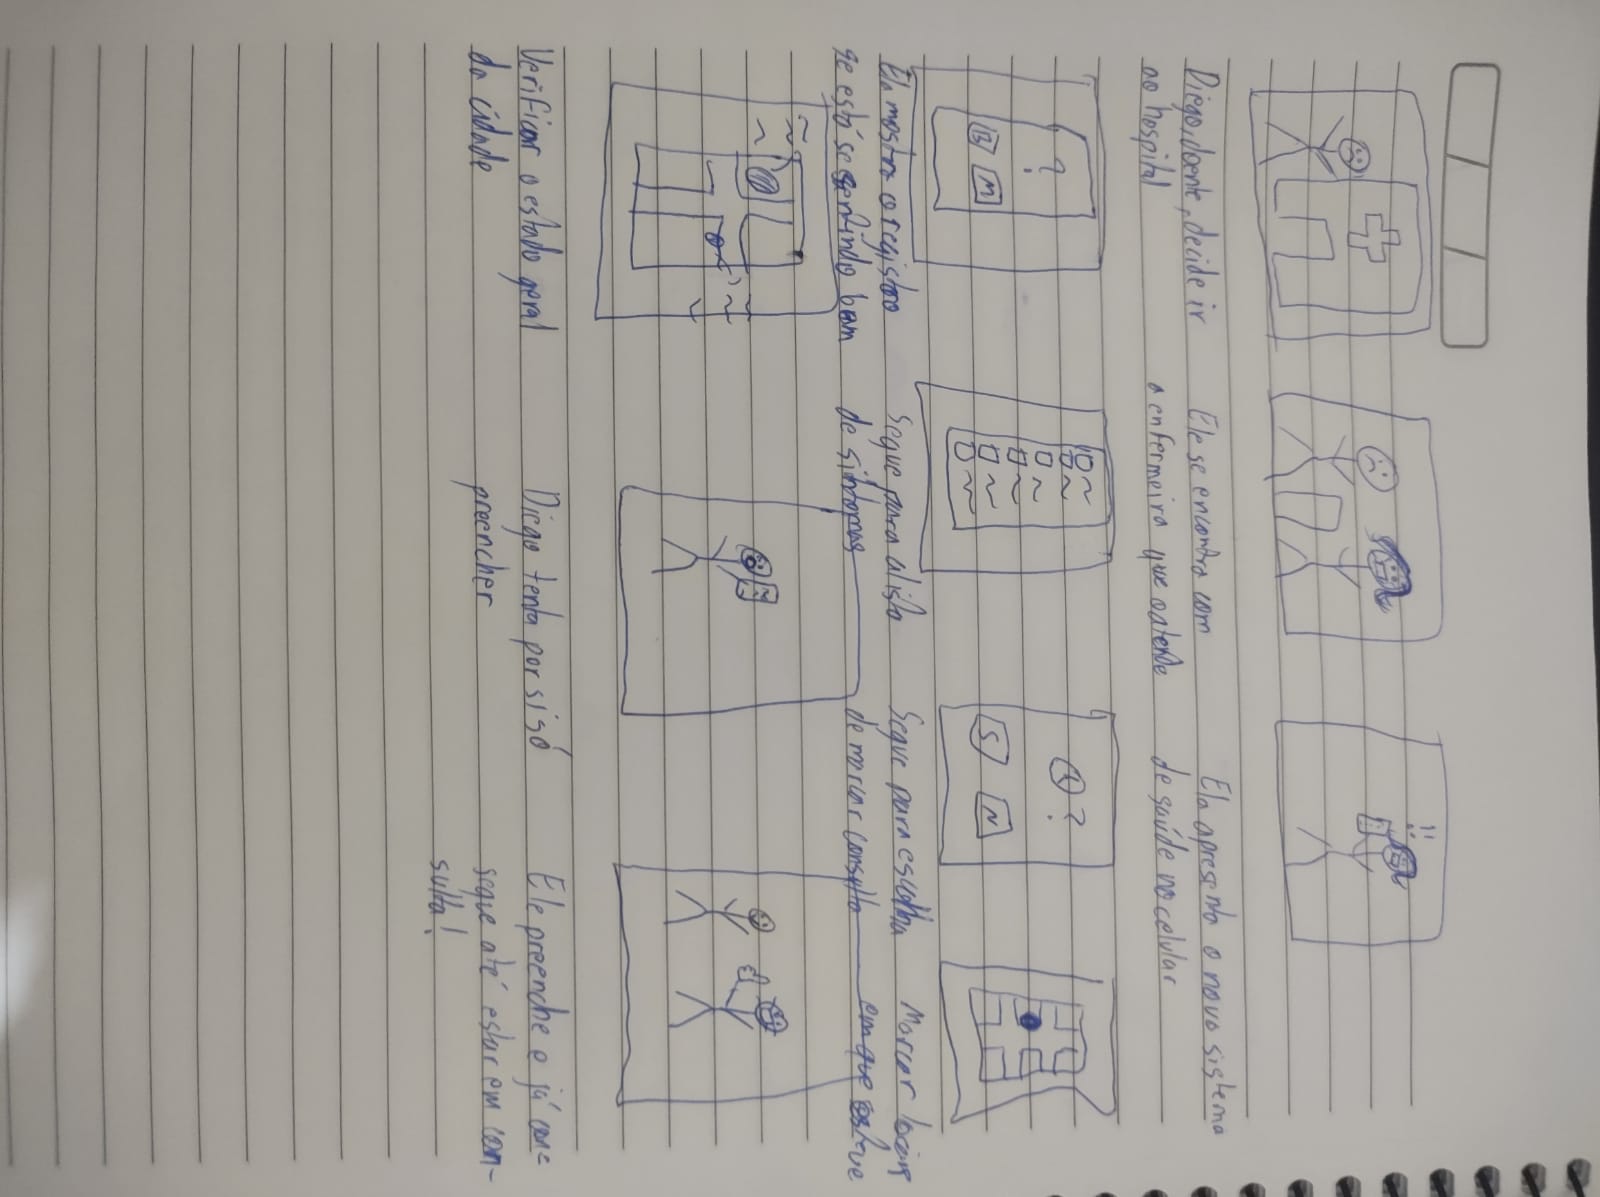 !!
Diego, doente, decide ir
ao hospital
Ele se encontra com
a enfermeira que o atende
Ela apresenta o novo sistema
de saúde no celular
?
B M
Ela mostra o registro
se está se sentindo bem
Segue para a lista
de sintomas
?
S N
Segue para escolha
de marcar consulta
Marcar
em que esteve
Verificar o estado geral
da cidade
Diego tenta por si só
preencher
Ele preenche e já con-
segue até estar em con-
sulta!